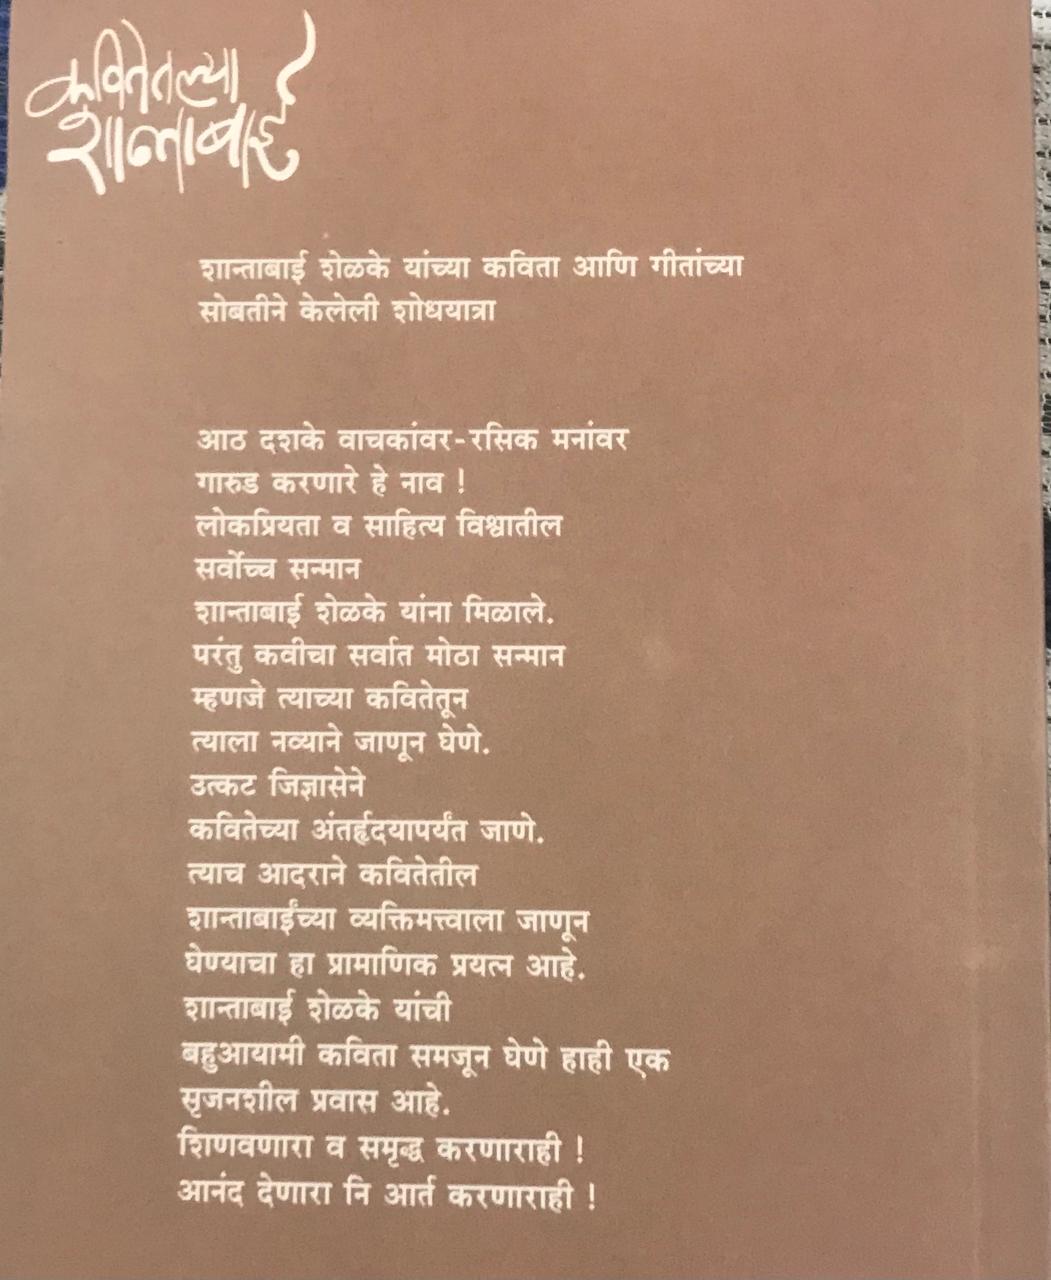 कवितेतल्या
शान्ताबाई
शान्ताबाई शेळके यांच्या कविता आणि गीतांच्या
सोबतीने केलेली शोधयात्रा
आठ दशके वाचकांवर-रसिक मनांवर
गारुड करणारे हे नाव !
लोकप्रियता व साहित्य विश्वातील
सर्वोच्च सन्मान
शान्ताबाई शेळके यांना मिळाले.
परंतु कवीचा सर्वात मोठा सन्मान
म्हणजे त्याच्या कवितेतून
त्याला नव्याने जाणून घेणे.
उत्कट जिज्ञासेने
कवितेच्या अंतर्हृदयापर्यंत जाणे.
त्याच आदराने कवितेतील
शान्ताबाईंच्या व्यक्तिमत्त्वाला जाणून
घेण्याचा हा प्रामाणिक प्रयत्न आहे.
शान्ताबाई शेळके यांची
बहुआयामी कविता समजून घेणे हाही एक
सृजनशील प्रवास आहे.
शिणवणारा व समृद्ध करणाराही !
आनंद देणारा नि आर्त करणाराही !